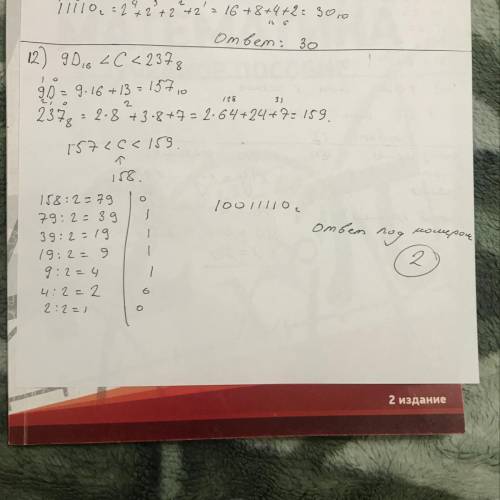 11110₂ = 2⁴ + 2³ + 2² + 2¹ = 16 + 8 + 4 + 2 = 30₁₀
Ответ: 30
12) 9D₁₆ < C < 237₈
1 0
9D = 9·16 + 13 = 157₁₀
2 1 0
237₈ = 2·8² + 3·8 + 7 = 2·64 + 24 + 7 = 159.
128 31
157 < C < 159.
↑
158.
158 : 2 = 79 | 0
79 : 2 = 39 | 1
39 : 2 = 19 | 1
19 : 2 = 9 | 1
9 : 2 = 4 | 1
4 : 2 = 2 | 0
2 : 2 = 1 | 0
10011110₂
Ответ под номером
2
2 издание